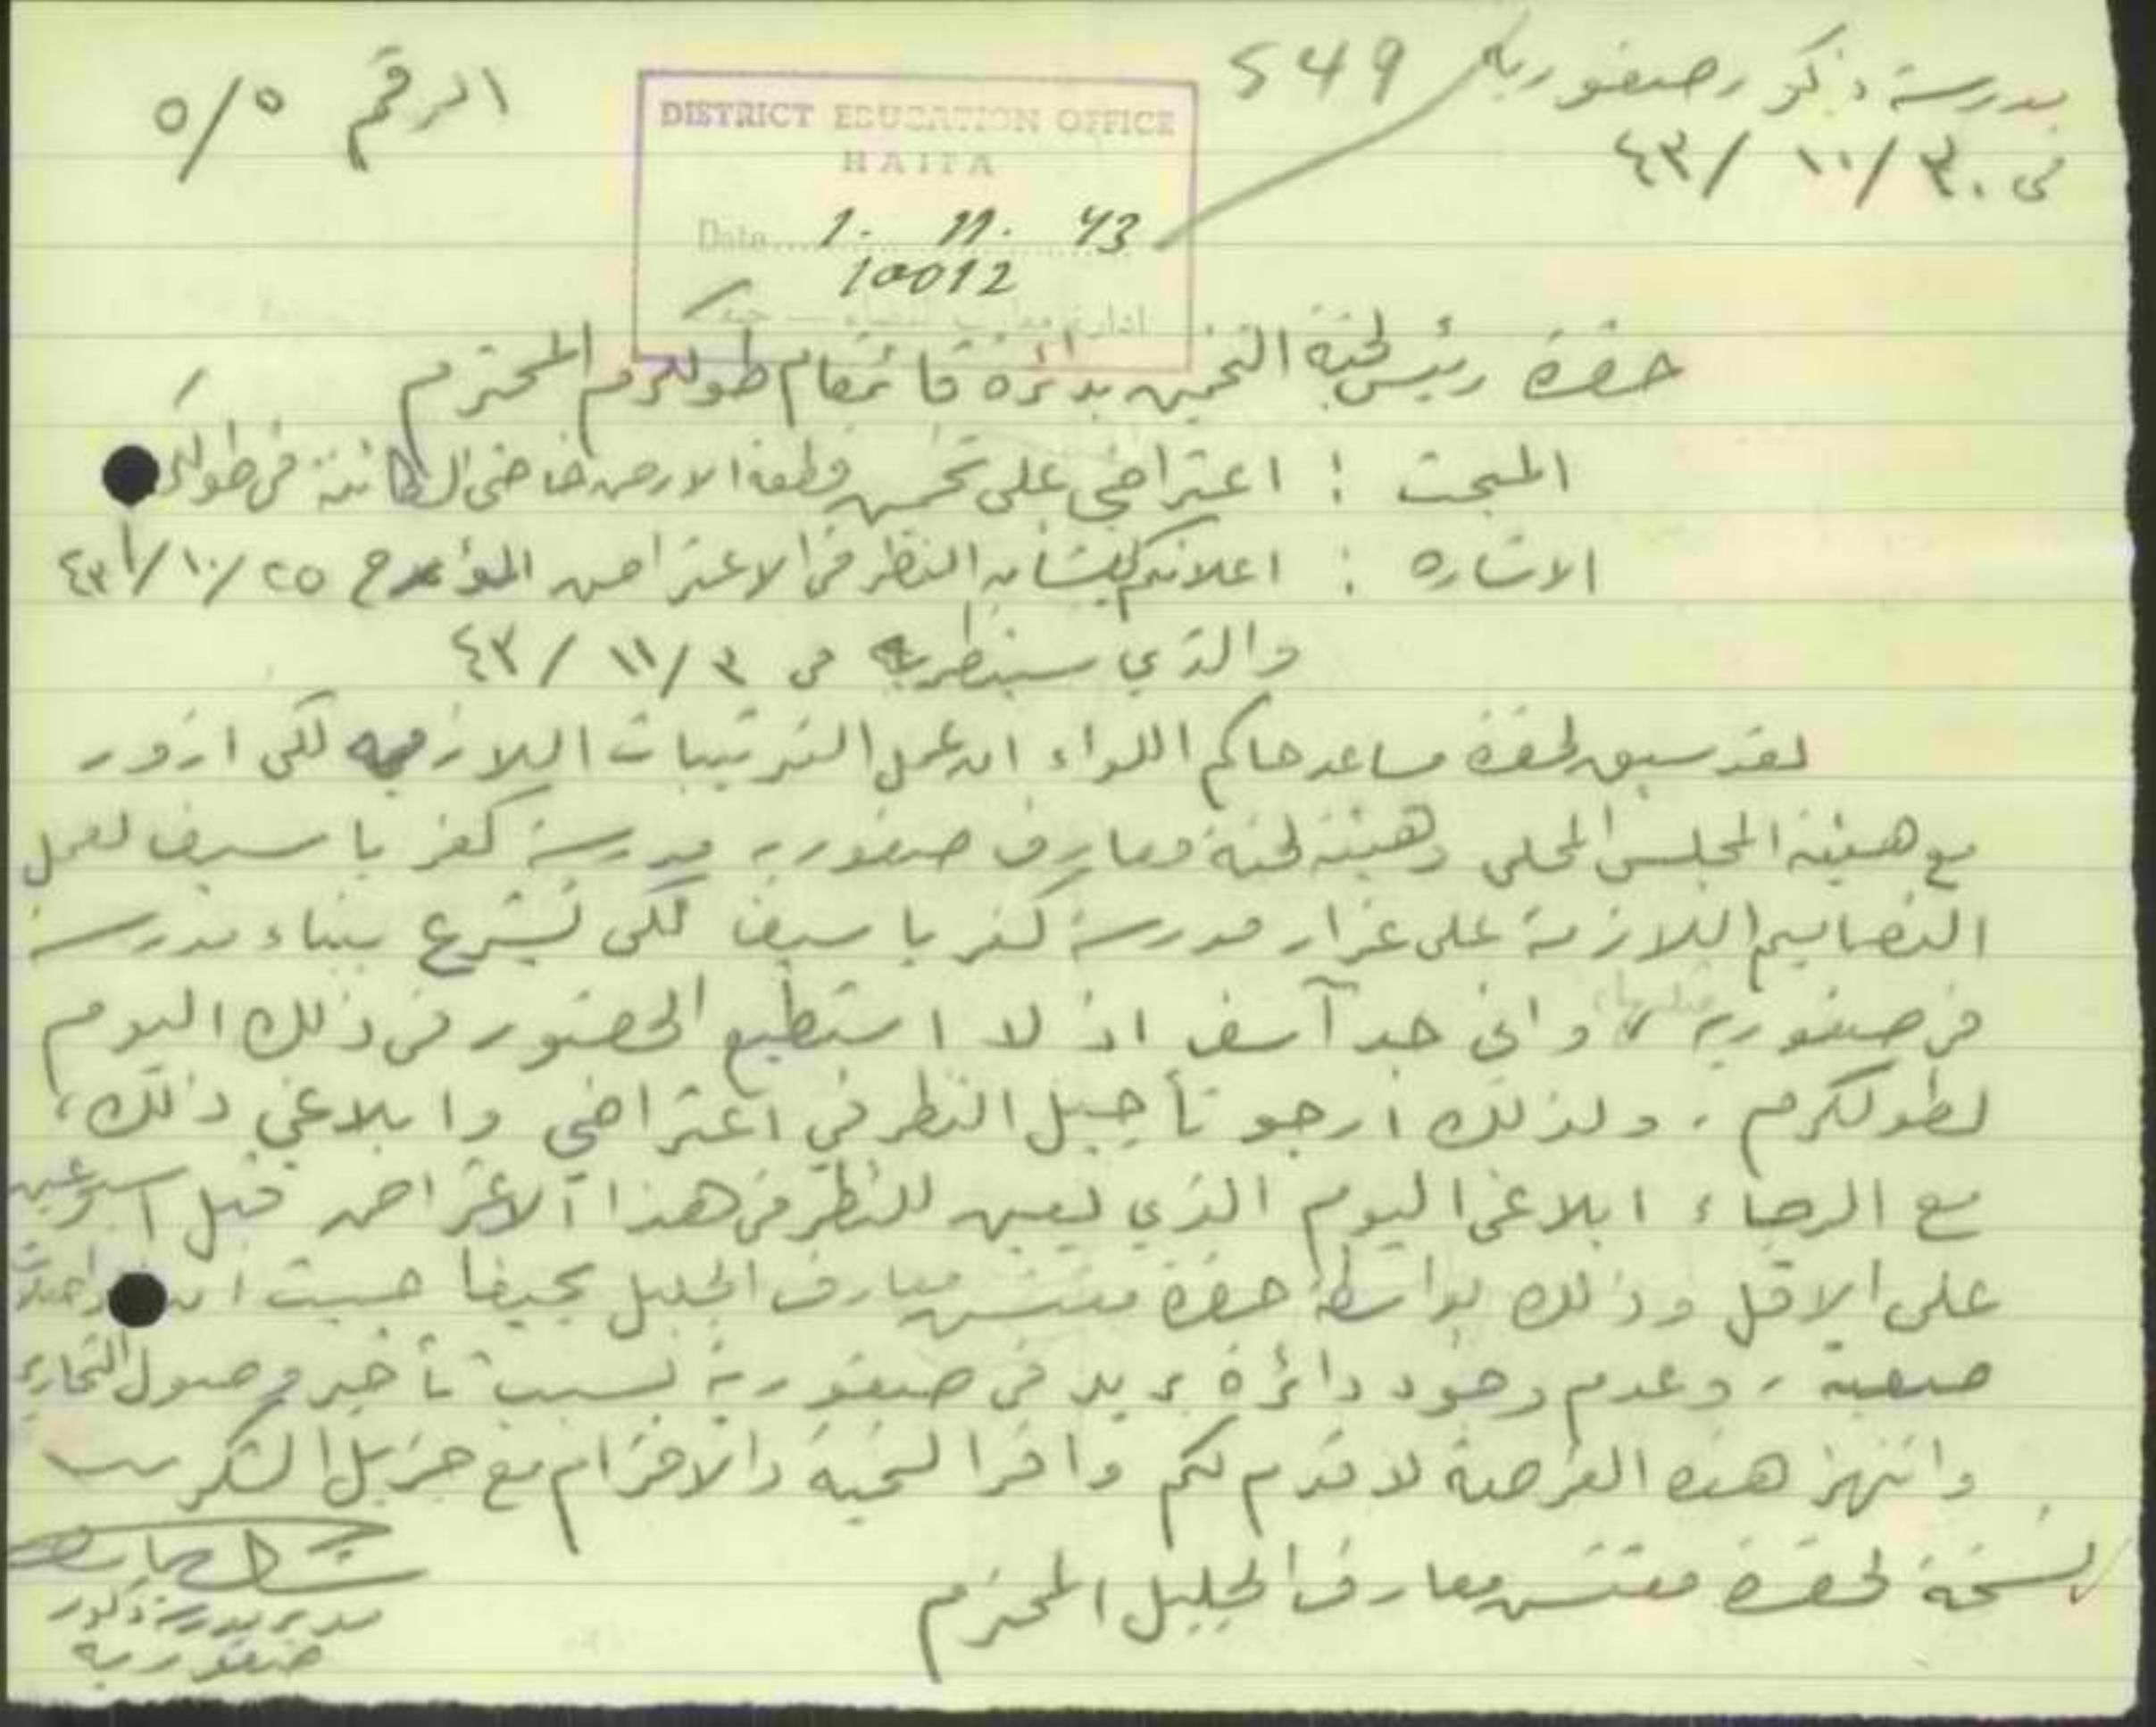 مدرسة ذكور صفوريه
549
الرقم ٥/٥
في ٣٠/١٠/٤٣
DISTRICT EDUCATION OFFICE
HAIFA
Date 1. 11. 43
10012
حضرة رئيس لجنة التخمين بدائرة قائمقام طولكرم المحترم
المبحث : اعتراضي على تخمين قطعة الارض الكائنة في
الاشاره : اعلانكم بشأن النظر في الاعتراض المؤرخ ٢٥/١٠/٤٣
والذي سينظر به في ٣/١١/٤٣
لقد سبق لحضرة مساعد حاكم اللواء ان عمل الترتيبات اللازمه لكي ازور
مع هيئة المجلس المحلي وهيئة لجنة معارف صفوريه مدرسة كفر ياسيف لعمل
التصاميم اللازمة على غرار مدرسة كفر ياسيف لكي نشرع ببناء مدرسة
في صفوريه ، واني جد آسف اذ لا استطيع الحضور في ذلك اليوم
لطولكرم ، ولذلك ارجو تأجيل النظر في اعتراضي وابلاغي ذلك ،
مع الرجاء ابلاغي اليوم الذي يعين للنظر في هذا الاعتراض قبل اسبوعين
على الاقل وذلك بواسطة حضرة مفتش معارف الجليل بحيفا حيث ان
صعبة ، وعدم وجود دائرة بريد في صفورية يسبب تأخير وصول التحارير
وانتهز هذه الفرصة لاقدم لكم وافر التحية والاحترام مع جزيل الشكر
نسخة لحضرة مفتش معارف الجليل المحترم
مدير مدرسة ذكور
صفوريه